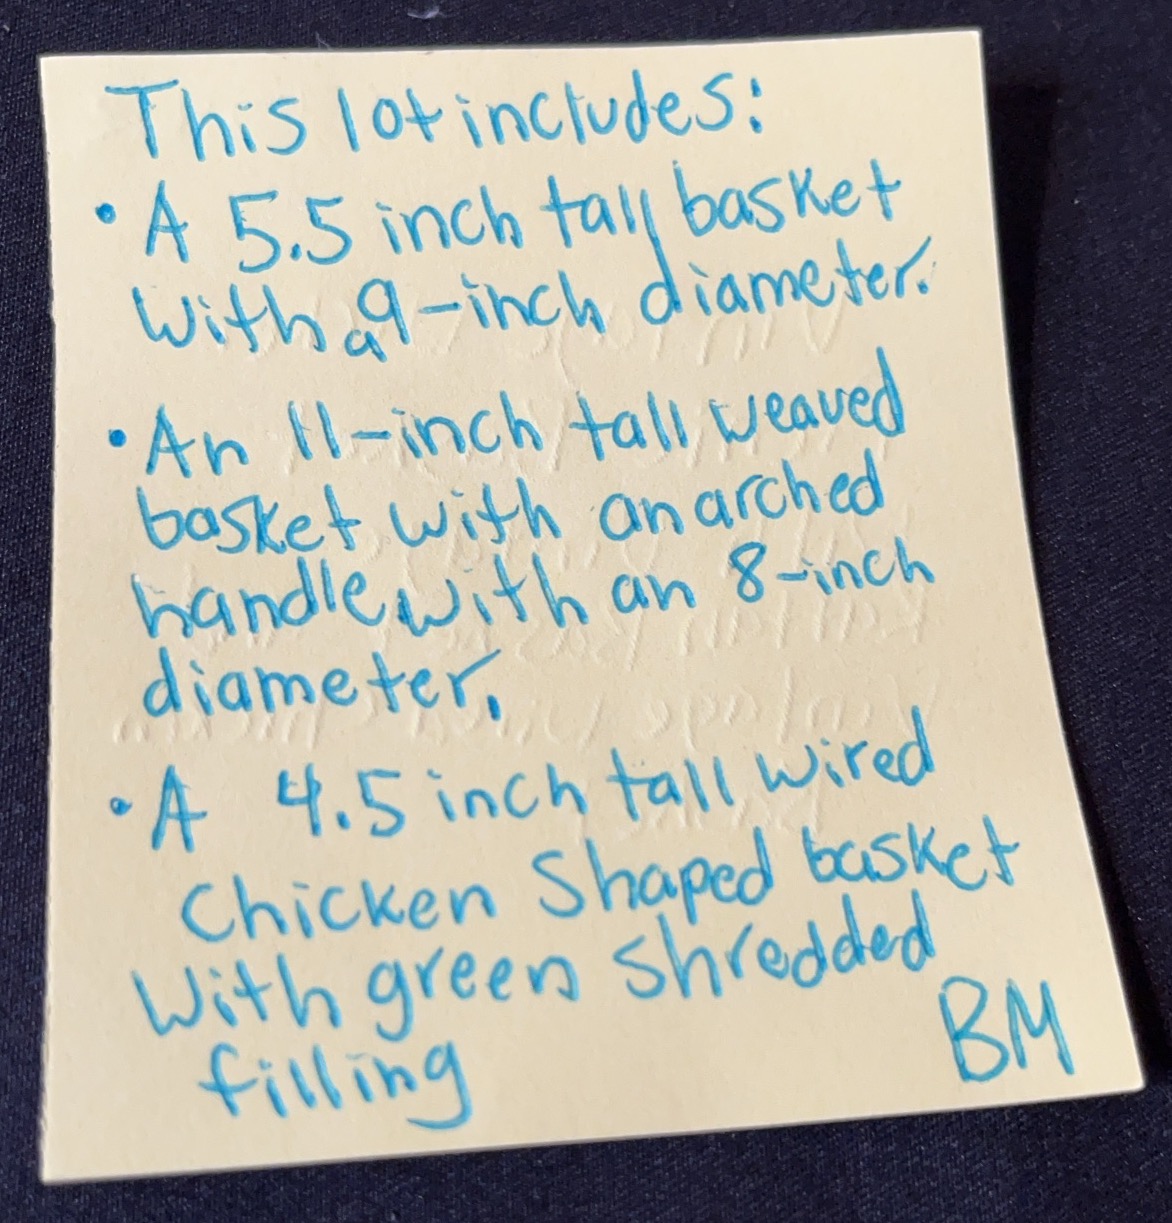 This lot includes:
• A 5.5 inch tall basket
with a 9-inch diameter.
• An 11-inch tall weaved
basket with an arched
handle with an 8-inch
diameter.
• A 4.5 inch tall wired
Chicken Shaped basket
With green shredded
filling
BM